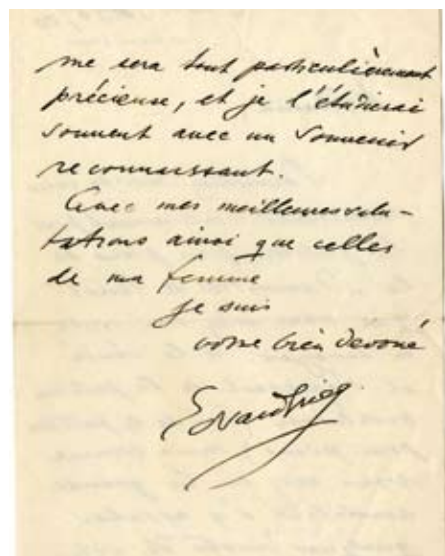 me sera tout particulièrement
précieuse, et je l'étudierai
souvent avec un souvenir
reconnaissant.
Avec mes meilleures salu-
tations ainsi que celles
de ma femme
je suis
votre bien dévoué
Edvard Grieg